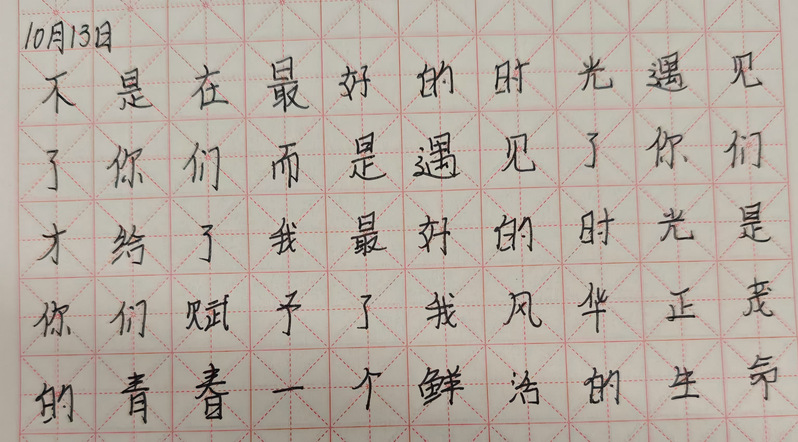 10月13日
不是在最好的时光遇见
了你们而是遇见了你们
才给了我最好的时光是
你们赋予了我风华正茂
的青春一个鲜活的生命